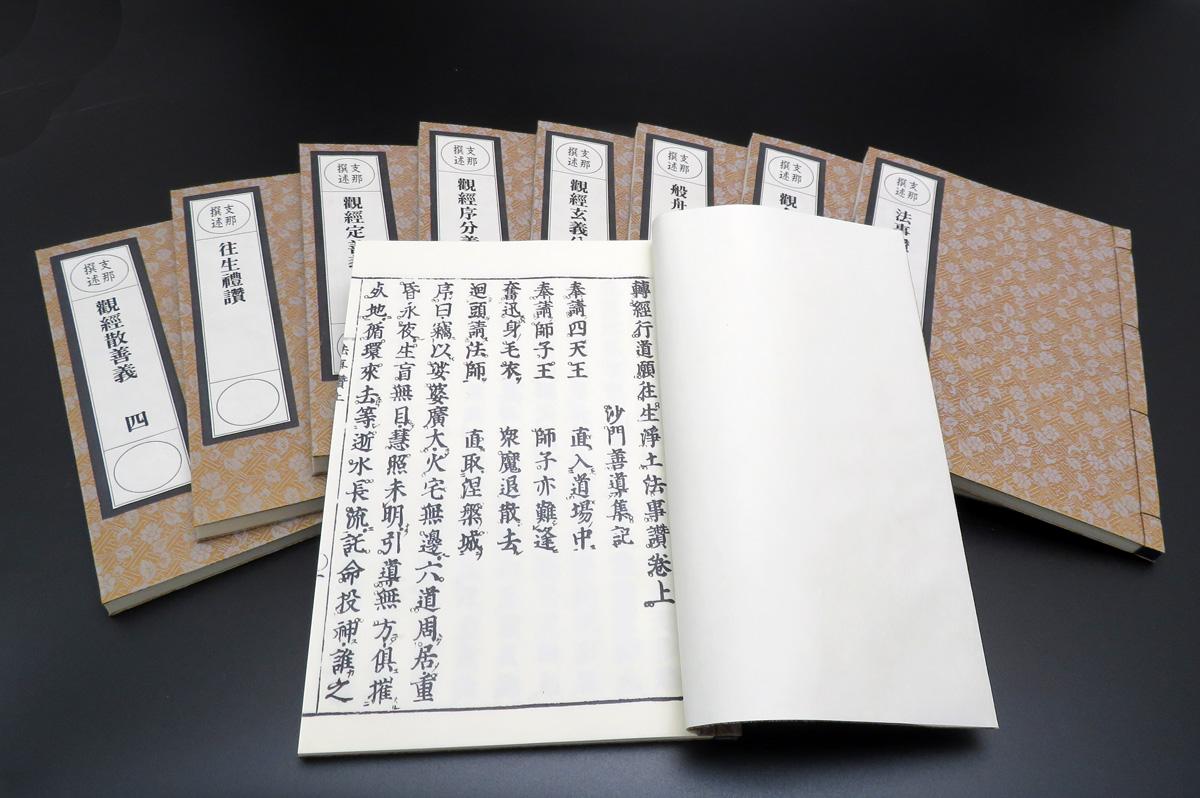 支那
撰述
觀經散善義 四
支那
撰述
往生禮讚
支那
撰述
觀經定善
支那
撰述
觀經序分義
支那
撰述
觀經玄義分
支那
撰述
般舟
支那
撰述
觀
支那
撰述
法事讚
轉經行道願往生淨土法事讚卷上
沙門善導集記
奉請四天王 直入道場中
奉請師子王 師子亦難逢
奮迅身毛衣 衆魔退散去
迴頭請法師 直取涅槃城
序曰竊以娑婆廣大火宅無邊六道周居重
昏永夜生盲無目慧照未明引導無方俱摧
死地循環來去等逝水長流託命投神誰之